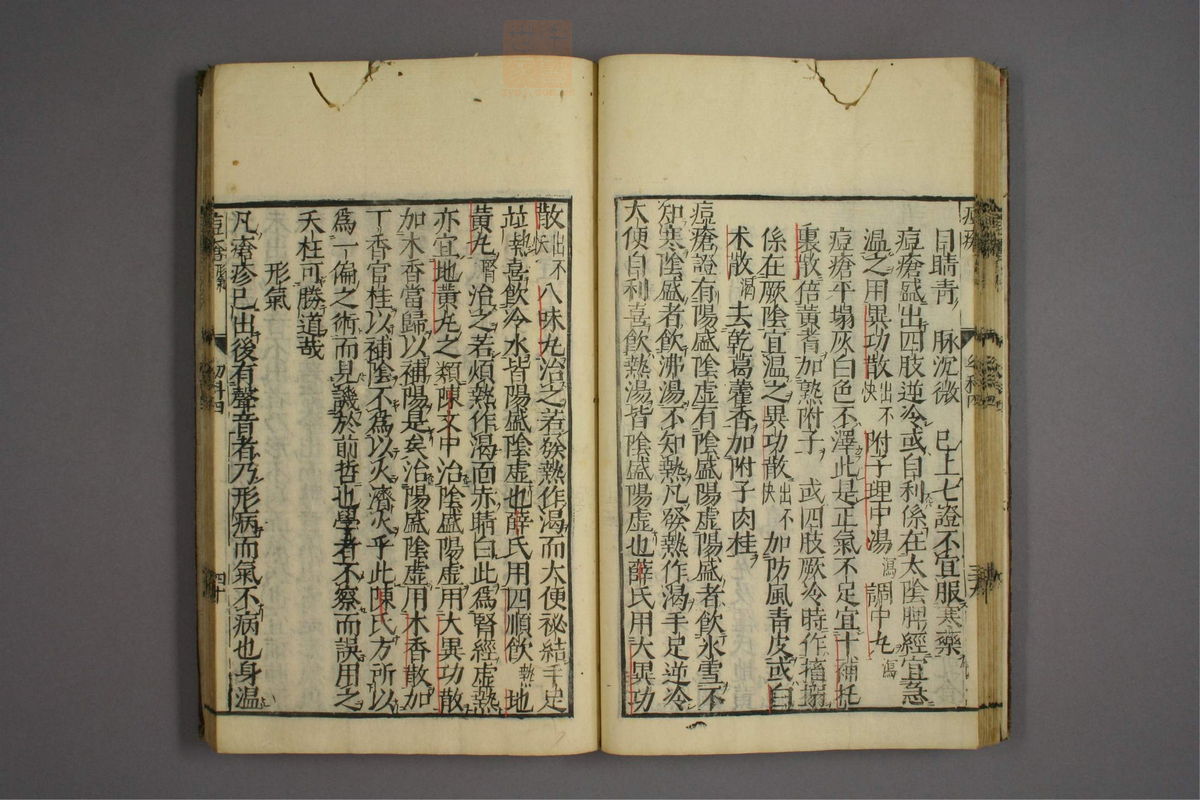 目睛青　脉沉微　已上七證不宜服寒藥
痘瘡盛出四肢逆冷或自利係在太陰脾經宜急
温之用異功散出不快附子理中湯瀉調中丸瀉
痘瘡平塌灰白色不澤此是正氣不足宜十補托
裏散倍黄耆加熟附子　或四肢厥冷時作搐搦
係在厥陰宜温之異功散出不快加防風青皮或白
术散渴去乾葛藿香加附子肉桂
痘瘡證有陽盛陰虚有陰盛陽虚陽盛者飲氷雪不
知寒陰盛者飲沸湯不知熱凡發熱作渴手足逆冷
大便自利喜飲熱湯皆陰盛陽虚也薛氏用大異功
散出不快八味丸治之若發熱作渴而大便祕結手足
並熱喜飲冷水皆陽盛陰虚也薛氏用四順飲熱地
黄丸腎治之若煩熱作渴面赤睛白此爲腎經虚熱
亦宜地黄丸之類陳文中治陰盛陽虚用大異功散
加木香當歸以補陽是矣治陽盛陰虚用木香散加
丁香官桂以補陰不爲以火濟火乎此陳氏方所以
爲一偏之術而見譏於前哲也學者不察而誤用之
夭枉可勝道哉
形氣
凡瘡疹已出後有聲音者乃形病而氣不病也身温
幼科四
四十